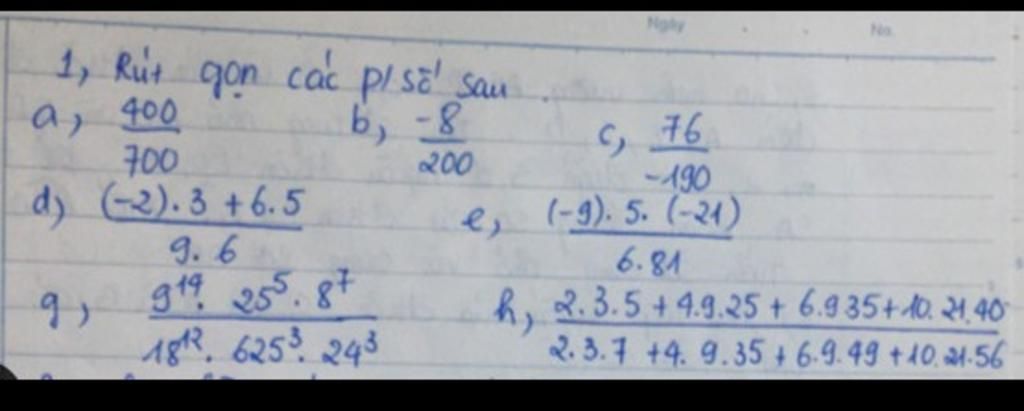 Ngày No.
1, Rút gọn các p/số sau.
a, 400/700 b, -8/200 c, 76/-190
d) (-2).3 + 6.5/9.6 e, (-9).5.(-21)/6.81
g, 9¹⁴. 25⁵. 8⁷/18¹². 625³. 24³ h, 2.3.5 + 4.9.25 + 6.9.35 + 10.21.40/2.3.7 + 4.9.35 + 6.9.49 + 10.21.56